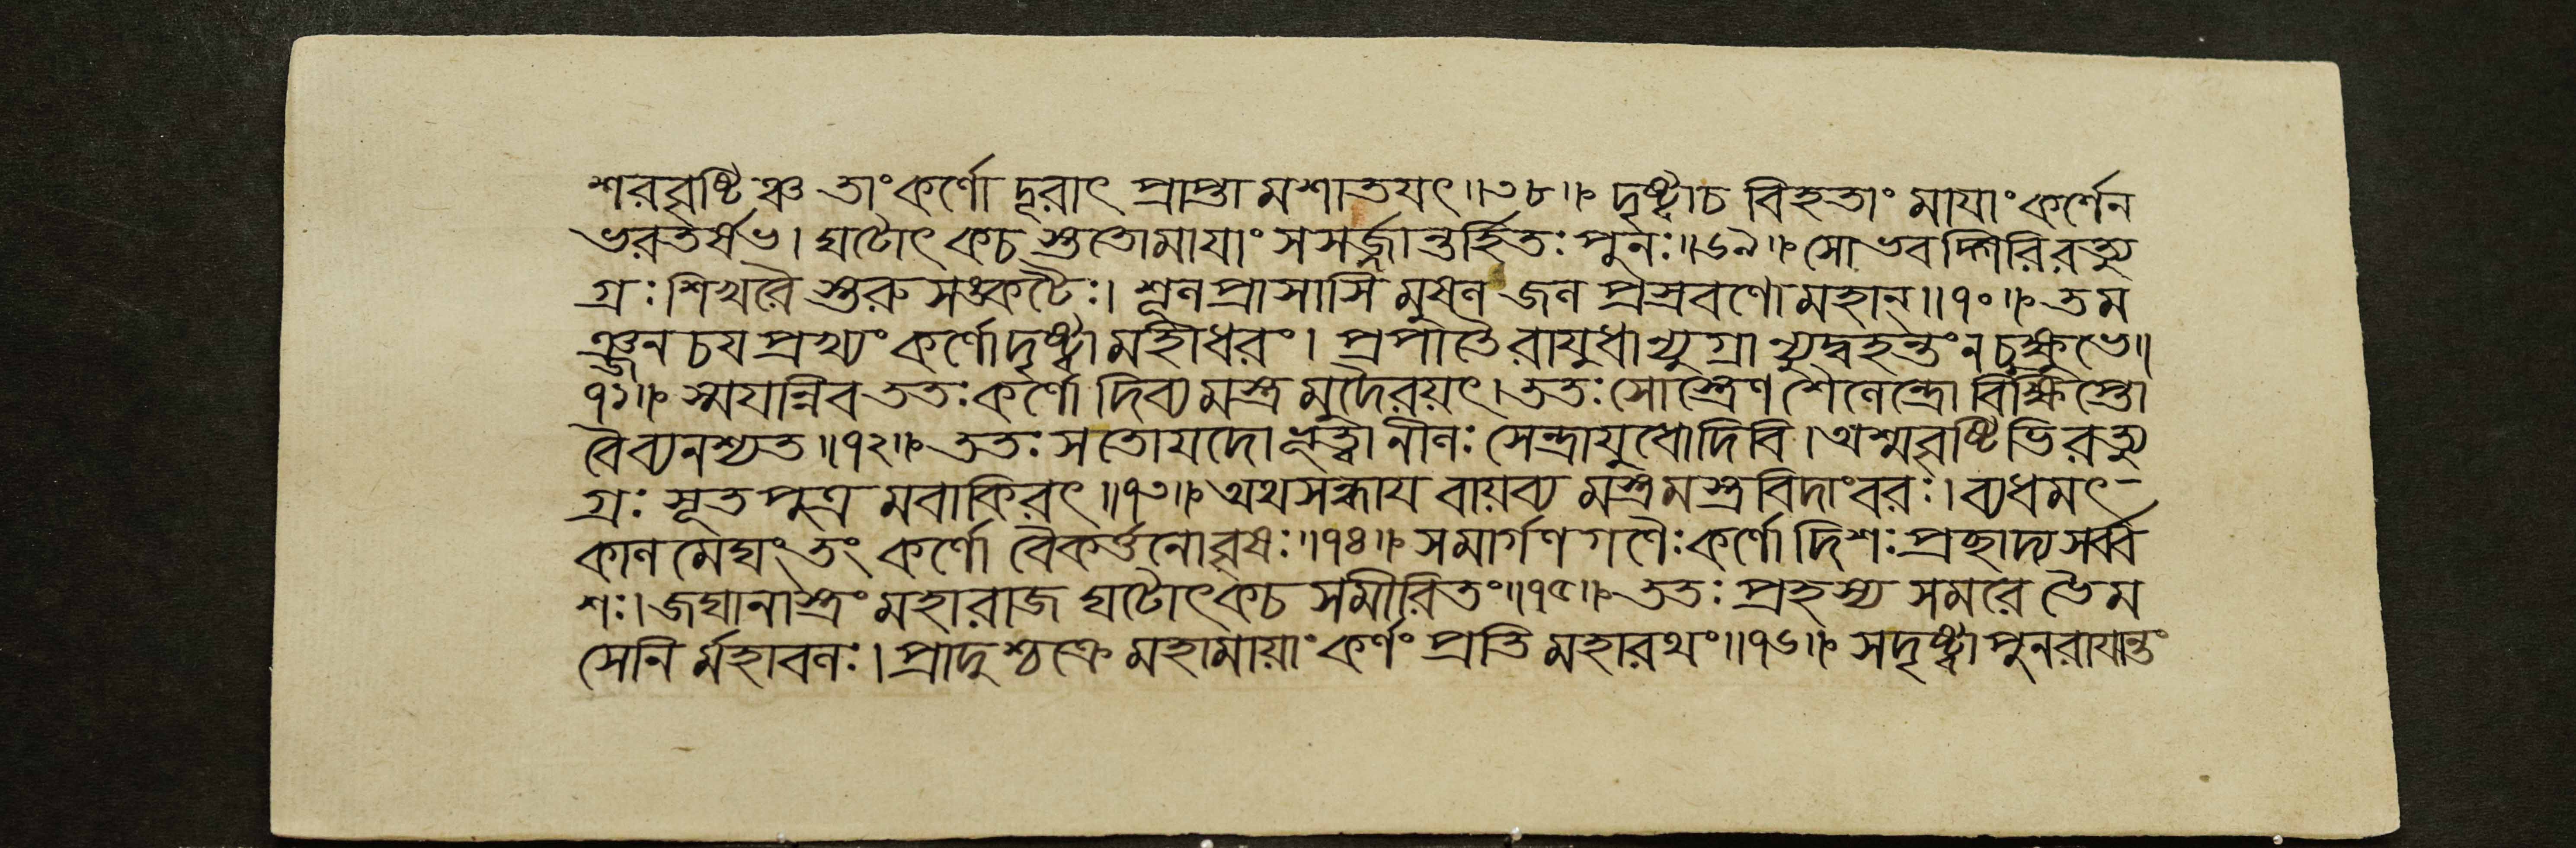 শরবৃষ্টিঞ্চ তাংকর্ণো দূরাৎ প্রাপ্তা মশাতযৎ॥৩৮॥ দৃষ্ট্বাচ বিহতাং মাযাংকর্ণেন
ভরতর্ষভ। ঘটোৎকচ স্ততোমাযাং সসর্জ্জান্তর্হিতঃ পুনঃ॥৬৯॥ সোভবদ্গিরিরত্যু
গ্রঃ শিখরৈ স্তরুসঙ্কটৈঃ। শূলপ্রাসাসি মুষল জল প্রস্রবণো মহান্॥৭০॥ তম
ঞ্জনচযপ্রখ্যং কর্ণোদৃষ্ট্বা মহীধরং। প্রপাতৈ রাযুধান্যুগ্রান্যুদ্বহন্তং ন চুক্ষুভে॥
৭১॥ স্মযান্নিব ততঃকর্ণো দিব্যমস্ত্র মুদৈরয়ৎ। ততঃসোস্ত্রেণ শৈলেন্দ্রো বিক্ষিপ্তো
বৈব্যনশ্যত॥৭২॥ ততঃ সতোযদো ভূত্বা নীলঃ সেন্দ্রাযুধোদিবি। অশ্মবৃষ্টিভিরত্যু
গ্রঃ সূতপুত্র মবাকিরৎ॥৭৩॥ অথসন্ধায বায়ব্য মস্ত্রমস্ত্রবিদাংবরঃ। ব্যধমৎ
কাল মেঘংতং কর্ণো বৈকর্ত্তনোবৃষঃ॥৭৪॥ সমার্গণগণৈঃকর্ণো দিশঃ প্রচ্ছাদ্য সর্ব্ব
শঃ। জঘানাস্ত্রং মহারাজ ঘটোৎকচ সমীরিতং॥৭৫॥ ততঃ প্রহস্য সমরে ভৈম
সেনি র্মহাবলঃ। প্রাদুশ্চক্রে মহামায়াং কর্ণং প্রতি মহারথং॥৭৬॥ সদৃষ্ট্বা পুনরাযান্তং